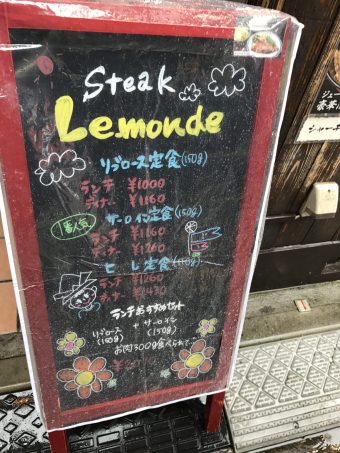 Steak
Lemonde
リブロース定食(150g)
ランチ ¥1000
ディナー ¥1160
1番人気
サーロイン定食(150g)
ランチ ¥1160
ディナー ¥1260
ヒレ定食(150g)
ランチ
ディナー
ランチおすすめセット
リブロース + サーロイン
(150g) (150g)
お肉300g食べられて